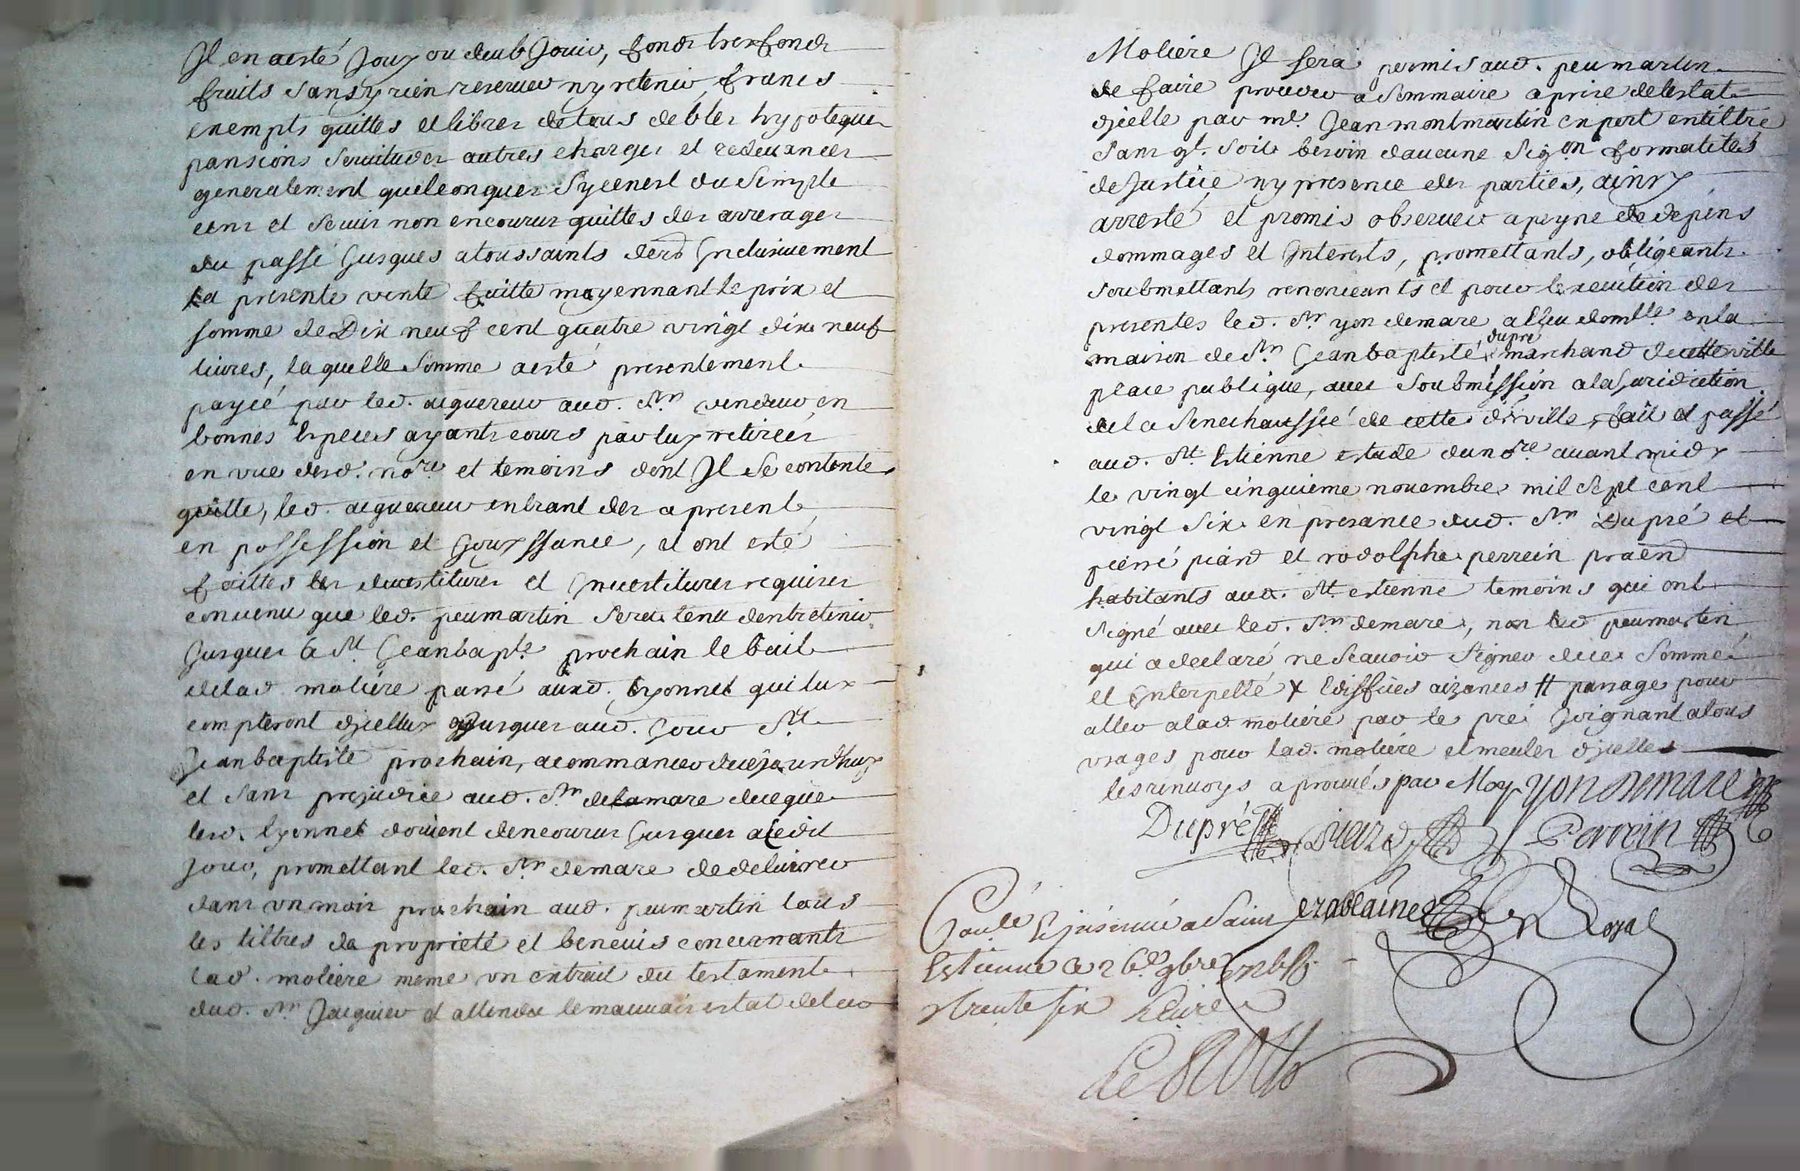 Il en a esté Jouy ou deub Jouir, fondz trexfondz
fruits sans y rien reserver ny retenir, francs
exempts quittes et libres de tous debtes hypoteques
pansions servitudes autres charges et redevances
generalement quelconques sy ce nest du simple
cens et servis non encourus quittes des arrerages
du passé Jusques a toussaints der. Inclusivement
La presente vente faitte moyennant le prix et
somme de Dix neuf cent quatre vingt dix neuf
livres, laquelle somme a esté presentement
payée par led. acquereur aud. Sr. vendeur en
bonnes especes ayants cours par luy retirees
en vue desd. nore et temoins dont Il se contente
quitte, led. acquereur entrant des a present
en possession et Jouyssance, et ont esté
faittes les devestitures et Investitures requises
convenu que led. peumartin sera tenu dentretenir
Jusques a St Jean bapte prochain le bail
de lad. moliére passé ausd. Eyonnet qui luy
compteront djcelluy Jusques aud. Jour St
Jean baptiste prochain, a commancer de cejourdhuy
et sans prejudice aud. Sr. delamare de ce que
lesd. Eyonnet doivent den courus Jusques a cedit
Jour, promettant led. Sr demare de delivrer
dans un mois prochain aud. peumartin tous
les tiltres de proprieté et benevis concernants
lad. moliére meme un extrait du testament
dud. Sr Jacquier et attendu le mauvais estat de lad
Moliére Il sera permis aud. peumartin
de faire proceder a sommaire aprise de lestat
djcelle par me. Jean montmartin expert en tiltre
sans qt. soit besoin daucune sigon formalités
de Justice ny presence des parties, ainsy
arresté et promis observer a peyne de depens
dommages et Interests, promettants, obligeants
soubmettants renonceants et pour lexecution des
presentes led. Sr yon demare a Esleu domlle en la
maison de Sr Jean baptiste dupré marchand de cette ville
place publique, avec soubmission a la Juridiction
de la Senechaussée de cette d. ville, fait et passé
aud. St Estienne estude du nore avant midy
le vingt cinquieme novembre mil sept cent
vingt six en presance dud. Sr Dupré et
pierre piard et rodolphe perrein praend
habitants aud. St estienne temoins qui ont
signé avec led. Sr demare, non led peumartin
qui a declaré ne scavoir signer de ce sommé
et Interpellé x Ediffices aizances # passage pour
aller a lad moliére par le pré Joignant a tous
usages pour lad. moliére et meules djcelles
les renvoys aprouvés par Moy yon demare
Dupré Piard Perrein
erablaine nre Royal
Controlé et jnsinué a Saint
Estienne ce 26e 9bre 1726
trente six livre